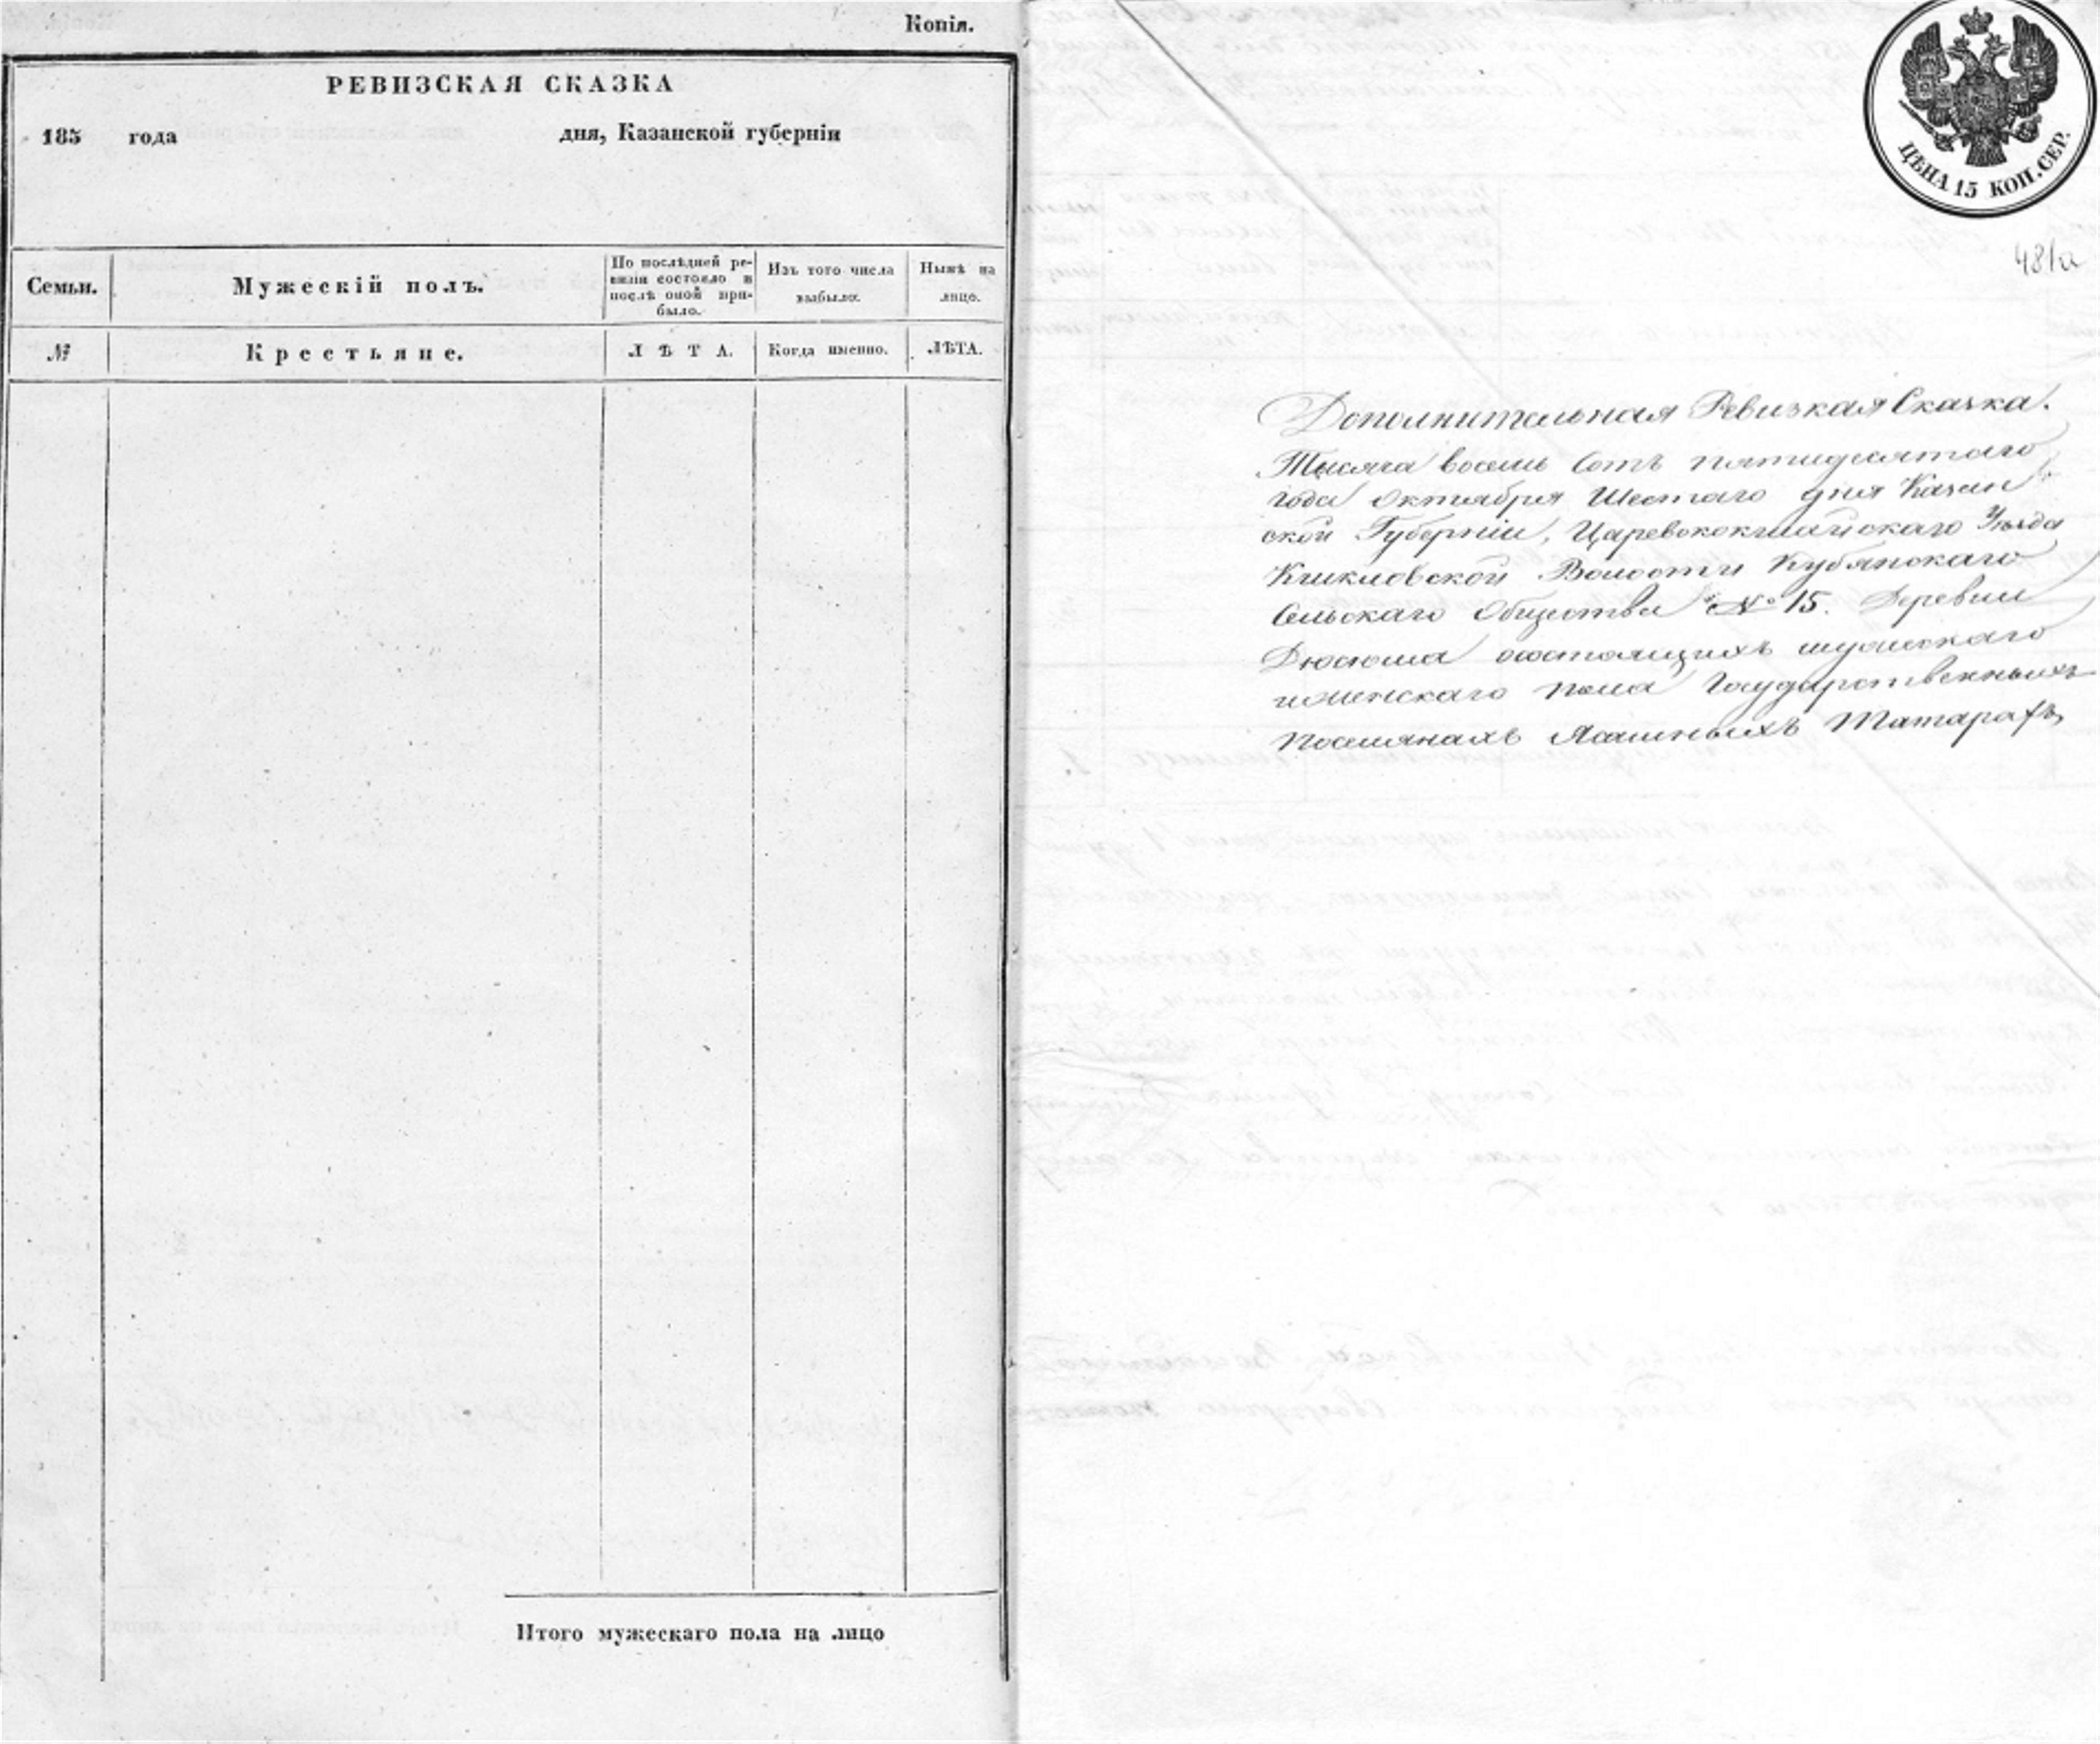 Копія.
РЕВИЗСКАЯ СКАЗКА
185 года дня, Казанской губерніи
Семьи.
Мужескій полъ.
По послѣдней ре-
визіи состояло и
послѣ оной при-
было.
Изъ того числа
выбыло.
Нынѣ на
лицо.
№
Крестьяне.
ЛѢТА.
Когда именно.
ЛѢТА.
Итого мужескаго пола на лицо
ЦѢНА 15 КОП. СЕР.
481а
Дополнительная Ревизкая Сказка.
Тысяча восемь Сотъ пятидесятаго
года Октября Шестаго дня Казан-
ской Губерніи, Царевококшайскаго Уѣзда
Волости Кубянскаго
Сельскаго Общества № 15. Деревни
Дюсюма состоящихъ мужескаго
и женскаго пола Государственныхъ
Поселянахъ Ясашныхъ Татарахъ